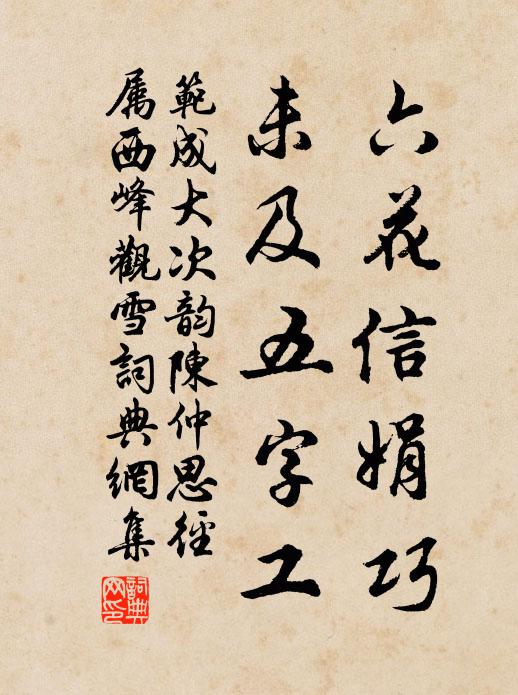 六花信娟巧
未及五字工
範成大次韵陳仲思径
属西峰觀雪詞典網集
詞典網印